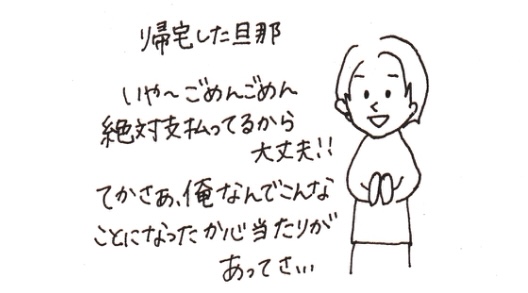 帰宅した旦那
いや〜ごめんごめん
絶対支払ってるから
大丈夫!!
てかさあ、俺なんでこんな
ことになったか心当たりが
あってさ…